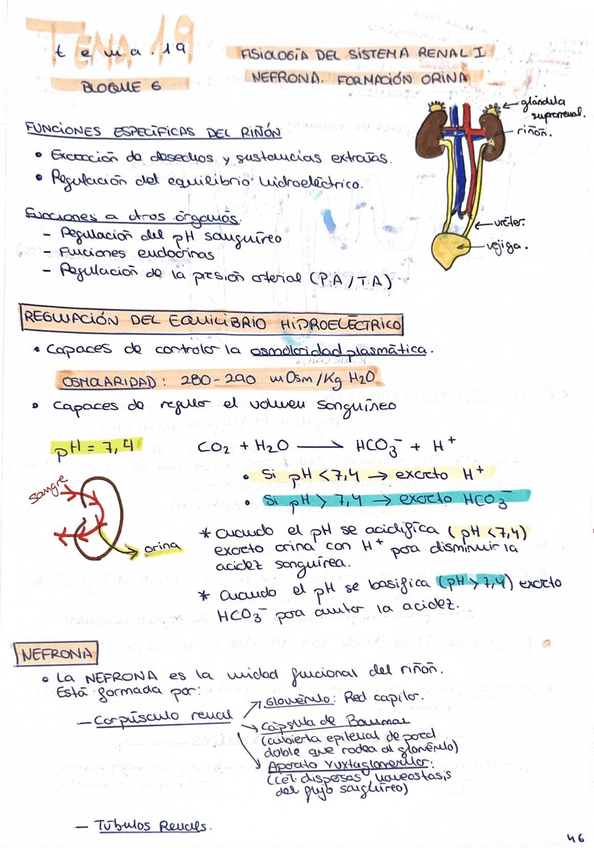 TEMA 19
tema.19
BLOQUE 6
FISIOLOGÍA DEL SISTEMA RENAL I
NEFRONA. FORMACIÓN ORINA
FUNCIONES ESPECÍFICAS DEL RIÑÓN
• Excreción de desechos y sustancias extrañas.
• Regulación del equilibrio hidroeléctrico.
Funciones a otros órganos.
- Regulación del pH sanguíneo
- Funciones endocrinas
- Regulación de la presión arterial (P.A/T.A)
glándula
suprarrenal.
riñón.
uréter.
vejiga.
REGULACIÓN DEL EQUILIBRIO HIDROELÉCTRICO
• Capaces de controlar la osmolaridad plasmática.
OSMOLARIDAD: 280-290 mOsm/Kg H2O
• Capaces de regular el volumen sanguíneo
pH = 7,4
CO2 + H2O → HCO3⁻ + H⁺
• Si pH < 7,4 → excreto H⁺
• Si pH > 7,4 → excreto HCO3⁻
sangre
orina
* Cuando el pH se acidifica (pH < 7,4)
excreto orina con H⁺ para disminuir la
acidez sanguínea.
* Cuando el pH se basifica (pH > 7,4) excreto
HCO3⁻ para aumentar la acidez.
NEFRONA
• La NEFRONA es la unidad funcional del riñón.
Está formada por:
- Corpúsculo renal
Glomérulo: Red capilar.
Cápsula de Bowman
(cubierta epitelial de pared
doble que rodea al glomérulo)
Aparato Yuxtaglomerular:
(cél. dispersas homeostasis
del flujo sanguíneo)
- Túbulos Renales.
46